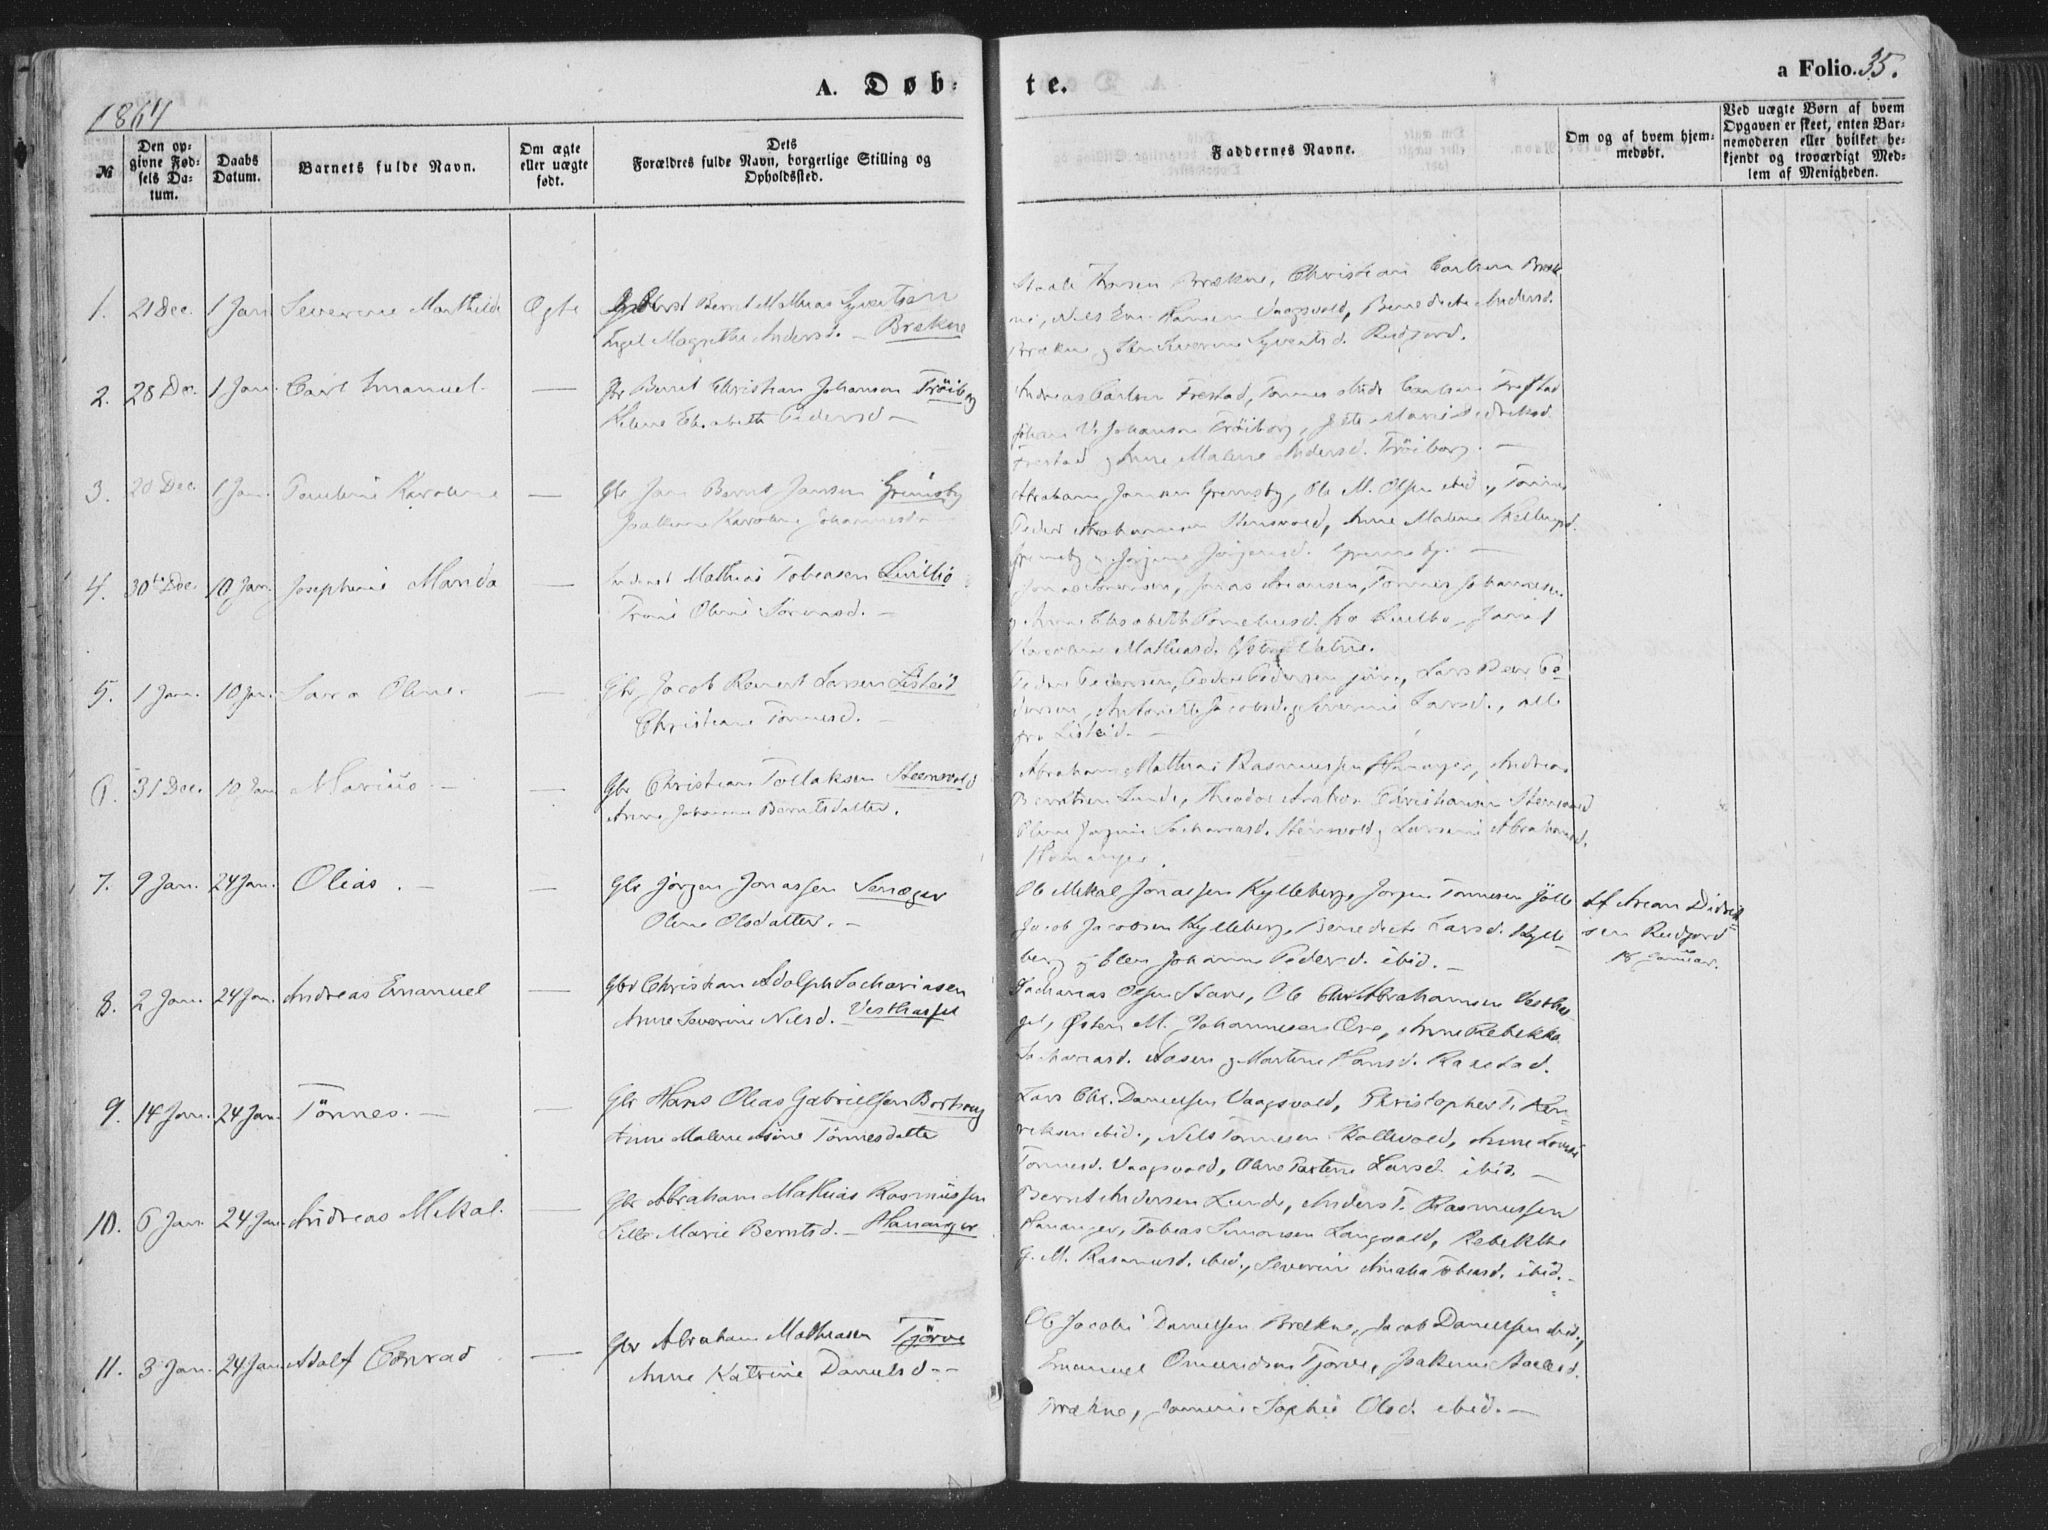 A. Døb-
te.
a Folio. 35.
1864
№
Den op-
givne Fød-
sels Da-
tum.
Daabs
Datum.
Barnets fulde Navn.
Om ægte
eller uægte
født.
Dets
Forældres fulde Navn, borgerlige Stilling og
Opholdssted.
Faddernes Navne.
Om og af hvem hjem-
medøbt.
Ved uægte Børn af hvem
Opgaven er skeet, enten Bar-
nemoderen eller hvilket be-
kjendt og troværdigt Med-
lem af Menigheden.
1. 21 Dec. 1 Jan. Severine Mathilde Ægte Bernt Mathias Syvertsen
Ingel Magrethe Andersd. — Brækne
Brækne, Christian Carlsen Bræk
ne, Nils Em. Hansen Vaagsvold, Benedicte Andersd.
Brækne g Severine Syvertsd. Rudjord.
2. 28 Dec. 1 Jan. Carl Emanuel. — Gbr Bernt Christian Johansen Tröiborg
Helene Elisabeth Pedersd —
Andreas Carlsen Frestad, Tönnes Carlsen Frestad
Johan Johansen Tröiborg, Marie Didriksd.
Frestad g Anne Malene Andersd. Tröiborg. —
3. 20 Dec. 1 Jan. Pauline Karoline — Gbr Jan Bernt Jansen Grimsby
Karoline Johannesd —
Abraham Jansen Grimsby, Ole M. Olsen ibid., Tönnes
Peder Abrahamsen Stensvold, Anne Malene
Grimsby g Jörgine Jörgensd. Grimsby. —
4. 30te Dec. 10 Jan. Josephine Manda — Mathias Tobiasen Kviljo
Trine Oline Sörensd. —
Jonas Jonassen, Jonas Ariansen, Tönnes Johannesen
g Anne Elisabeth Corneliusd. fra Kviljo,
Karoline Mathiasd. Östre Vatne.
5. 1 Jan. 10 Jan. Sara Oline. — Gbr Jacob Reinert Larsen Listeid
Christiane Tönnesd. —
Peder Pedersen, Peder Pedersen jün., Lars Peder Pe
dersen, Antonette Jacobsd. g Severine Larsd., alle
fra Listeid. —
6. 31 Dec. 10 Jan. Marius. — — Gbr Christian Tollaksen Steensvold
Anne Johanne Berntsdatter.
Abraham Mathias Rasmussen Hananger, Andreas
Berntsen Lunde, Theodor Christiansen Stensvold
Oline Jörgine Sachariasd. Stensvold g Larsine Abrahamsd.
Hananger.
7. 9 Jan. 24 Jan. Olias. — — Gbr Jörgen Jonassen Senæger
Oline Olsdatter. —
Ole Mikal Jonassen Kylleberg, Jörgen Tönnesen Jölle
Jacob Jacobsen Kylleberg, Benedicte Larsd. Kylle-
berg g Elen Johanne Pedersd. ibid. —
Af Arian Didrik=
sen Rudjord
18 Januar.
8. 2 Jan. 24 Jan. Andreas Emanuel — Gbr Christian Adolph Sachariasen
Anne Severine Nilsd. Vesthassel
Sacharias Olsen Stave, Ole Chr. Abrahamsen Vesthas-
sel, Østen M. Johannesen Ore, Anne Rebekka
Sachariasd. Aasen g Martine Hansd. Rakestad.
9. 14 Jan. 24 Jan. Tönnes. — — Gbr Hans Olias Gabrielsen Borhaug
Anne Malene Asine Tönnesdatter
Lars Chr. Danielsen Vaagsvold, Christopher T. Hen-
riksen ibid., Nils Tönnesen Kallevold, Anne Lovise
Tönnesd. Vaagsvold, Oline Larsd. ibid. —
10. 6 Jan. 24 Jan. Andreas Mikal. — Gbr Abraham Mathias Rasmüssen
Sille Marie Berntsd. — Hananger
Bernt Andersen Lunde, Anders T. Rasmussen
Hananger, Tobias Simonsen Langvold, Rebekka
G. M. Rasmusd. ibid., Severine Amalia Tobiasd. ibid. —
11. 3 Jan. 24 Jan. Adolf Conrad — Gbr Abraham Mathiasen Tjörve
Anne Katrine Danielsd —
Ole Jacob Danielsen Brækne, Jacob Danielsen ibid.,
Emanuel Omundsen Tjorve,
Brækne, Sophie Olsd. ibid. —